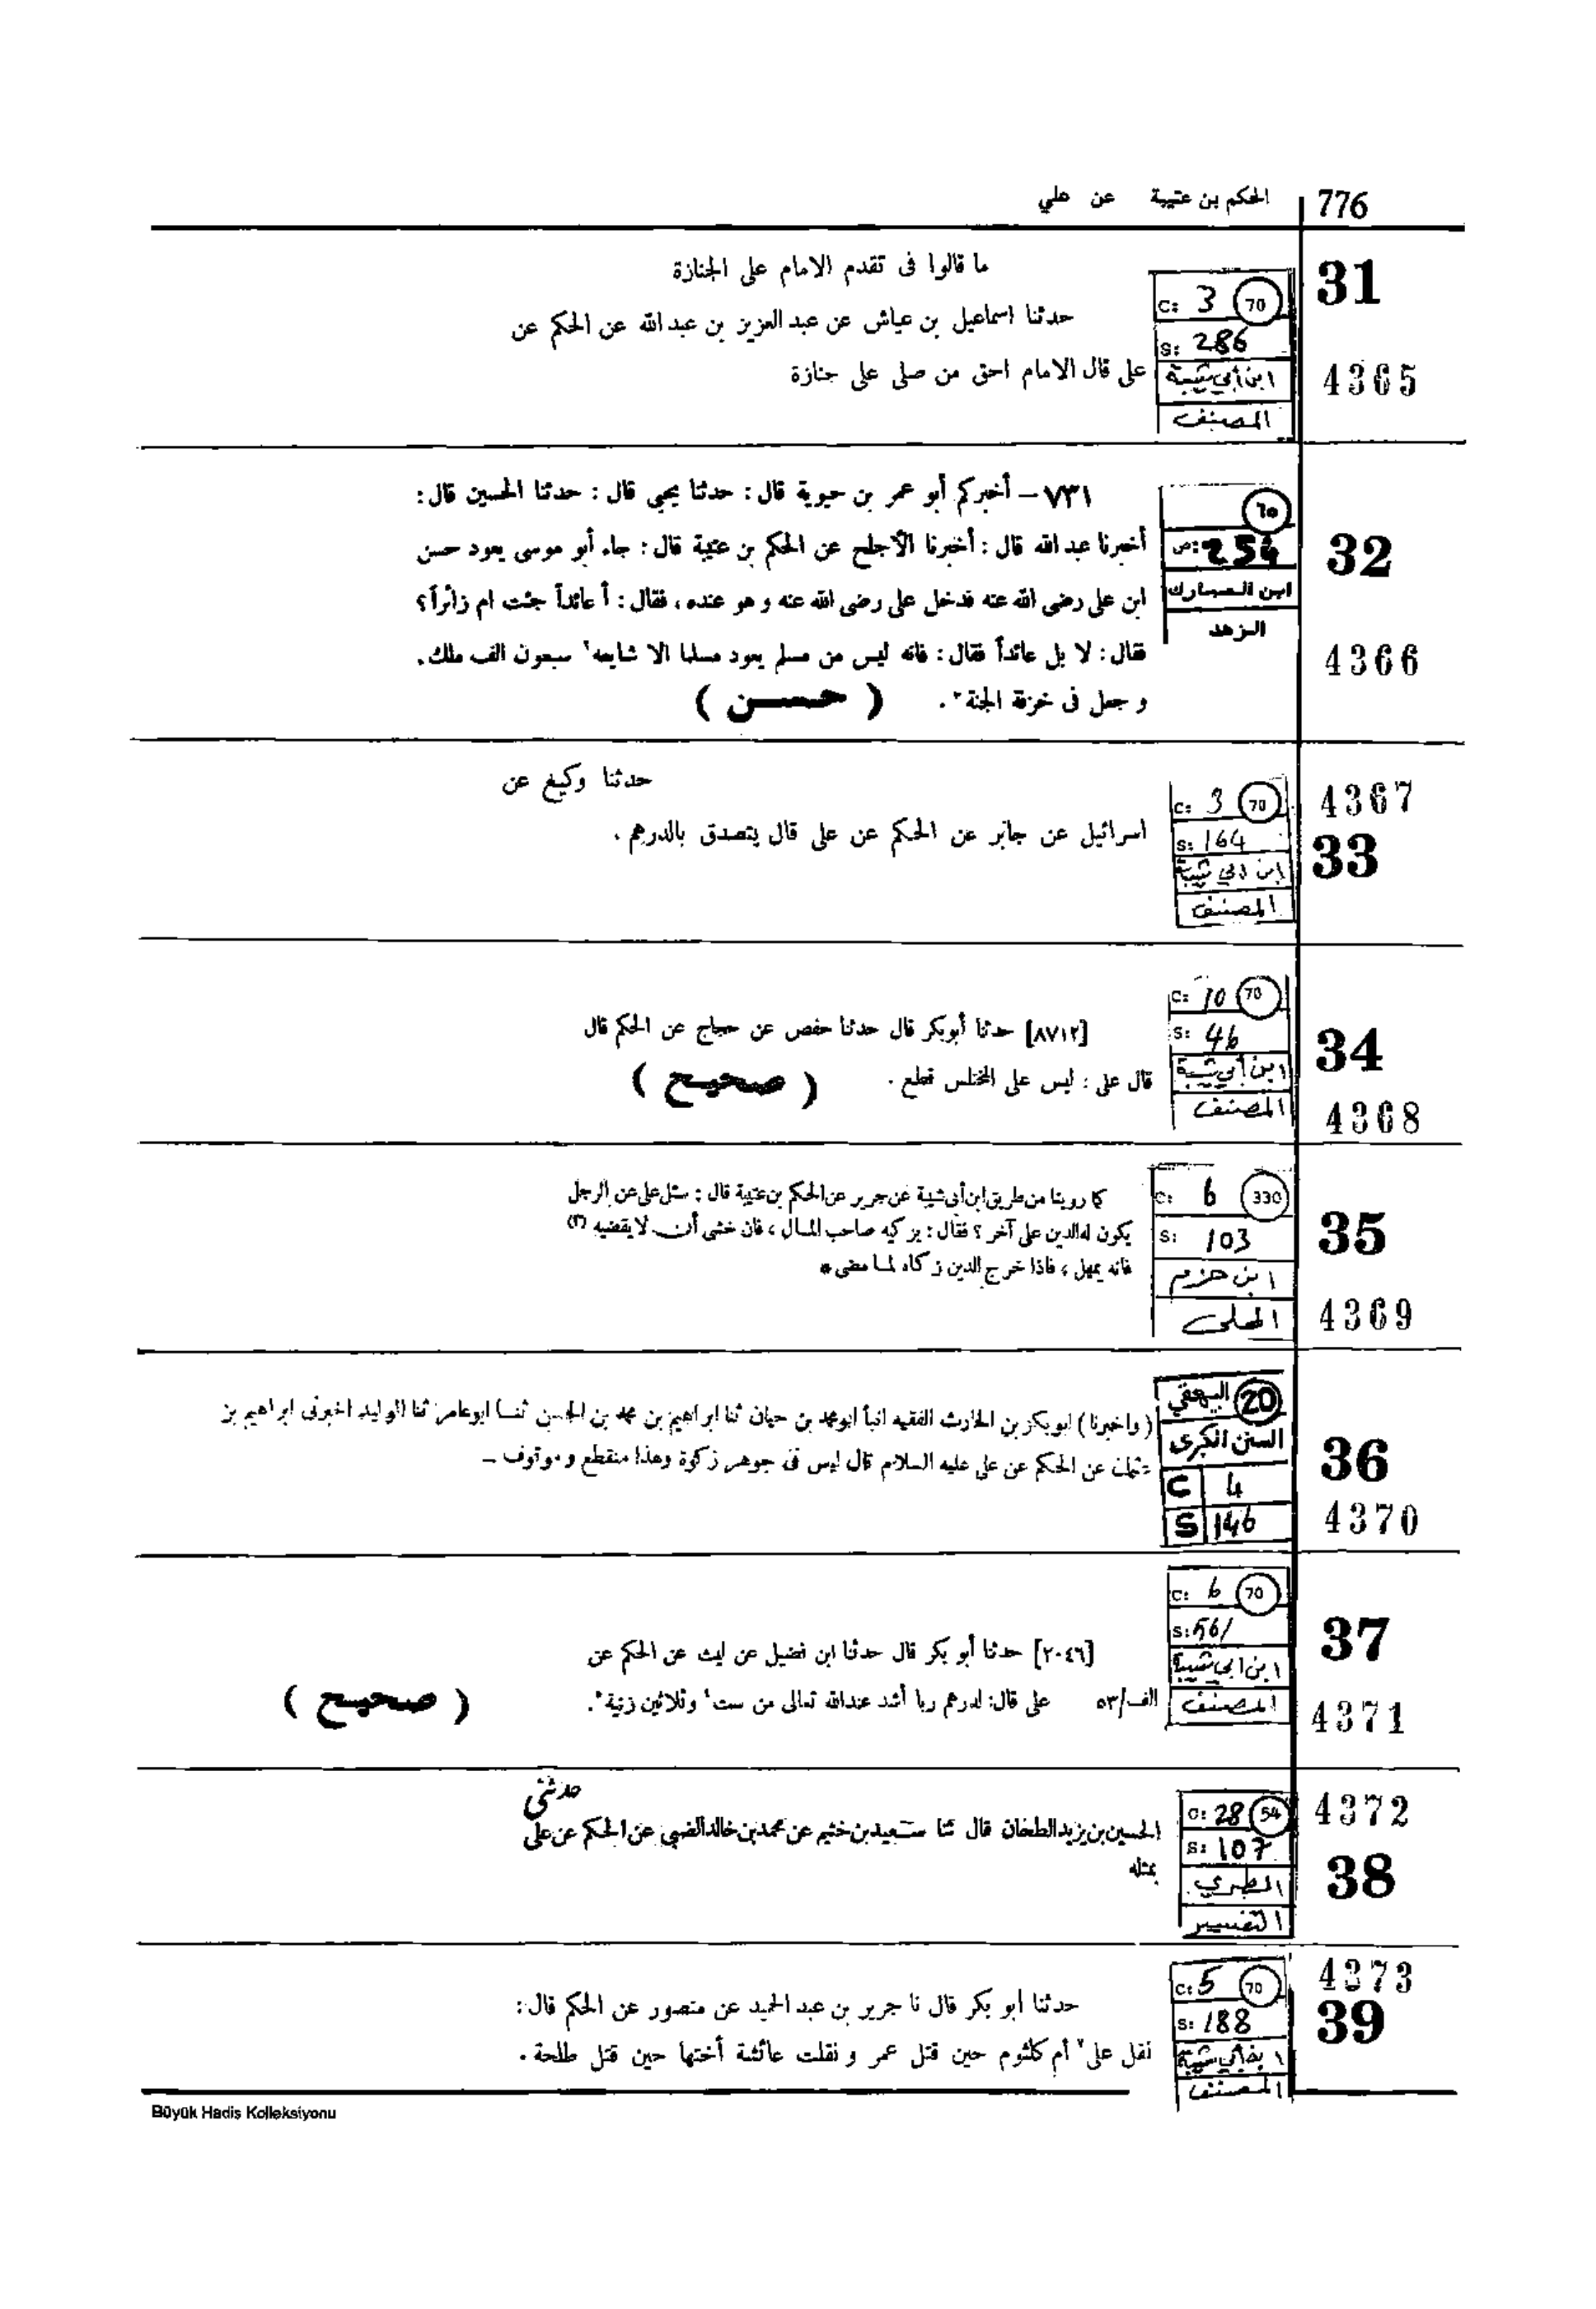 776
الحكم بن عتيبة عن علي
31
C: 3 70
S: 286
ابن أبي شيبة
المصنف
4365
ما قالوا فى تقدم الامام على الجنازة
حدثنا اسماعيل بن عياش عن عبد العزيز بن عبد الله عن الحكم عن
على قال الامام احق من صلى على جنازة
32
60
ص: 254
ابن المبارك
الزهد
4366
٧٣١ – أخبركم أبو عمر بن حيوية قال: حدثنا يحيى قال: حدثنا الحسين قال:
أخبرنا عبد الله قال: أخبرنا الأجلح عن الحكم بن عتيبة قال: جاء أبو موسى يعود حسن
ابن على رضى الله عنه فدخل على رضى الله عنه و هو عنده، فقال: أعائداً جئت ام زائراً؟
فقال: لا بل عائداً فقال: فانه ليس من مسلم يعود مسلما الا شايعه¹ سبعون الف ملك.
و جعل فى خزفة الجنة². ( حسن )
4367
33
C: 3 70
S: 164
ابن ابي شيبة
المصنف
حدثنا وكيع عن
اسرائيل عن جابر عن الحكم عن على قال يتصدق بالدرهم .
34
C: 10 70
S: 46
ابن أبي شيبة
المصنف
4368
[٨٧١٢] حدثنا أبوبكر قال حدثنا حفص عن حجاج عن الحكم قال
قال على : ليس على المختلس قطع . ( صحيح )
35
C: 6 330
S: 103
ابن حزم
المحلى
4369
كما روينا من طريق ابن أبى شيبة عن جرير عن الحكم بن عتيبة قال : سئل على عن الرجل
يكون له الدين على آخر ؟ فقال : يزكيه صاحب المال ، فان خشى أن لا يقضيه (٣)
فانه يمهل ، فاذا خرج الدين زكاه لما مضى *
36
20 البيهقي
السنن الكبرى
C 4
S 146
4370
( واخبرنا ) ابوبكر بن الحارث الفقيه انبأ ابومحمد بن حيان ثنا ابراهيم بن محمد بن الحسن ثنا ابوعامر ثنا الوليد اخبرنى ابراهيم بن
عثمان عن الحكم عن على عليه السلام قال ليس فى جوهر زكوة وهذا منقطع وموقوف –
37
C: 6 70
S: 561
ابن ابي شيبة
المصنف
4371
[٢٠٤٦] حدثنا أبو بكر قال حدثنا ابن فضيل عن ليث عن الحكم عن
الف/٥٣ على قال: لدرهم ربا أشد عندالله تعالى من ست¹ وثلاثين زنية². ( صحيح )
4372
38
C: 28 54
S: 107
الطبري
التفسير
حدثنى
الحسين بن يزيد الطحان قال ثنا سعيد بن خثيم عن محمد بن خالد الضبي عن الحكم عن على
بمثله
4373
39
C: 5 70
S: 188
ابن أبي شيبة
المصنف
حدثنا ابو بكر قال نا جرير بن عبد الحميد عن منصور عن الحكم قال:
نقل على² أم كلثوم حين قتل عمر و نقلت عائشة أختها حين قتل طلحة .
Büyük Hadis Kolleksiyonu